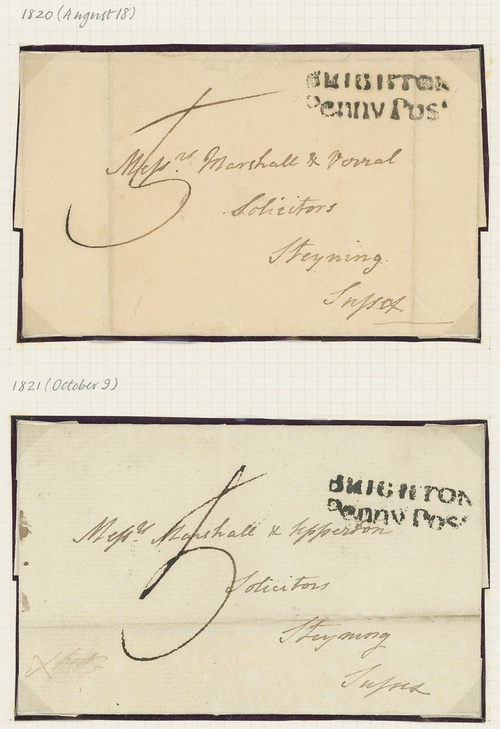 1820 (August 18)
BRIGHTON
Penny Post
5
Messrs. Marshall & Vorral
Solicitors
Steyning.
Sussex
1821 (October 9)
BRIGHTON
Penny Post
5
Messrs Marshall & Upperton
Solicitors
Steyning
Sussex